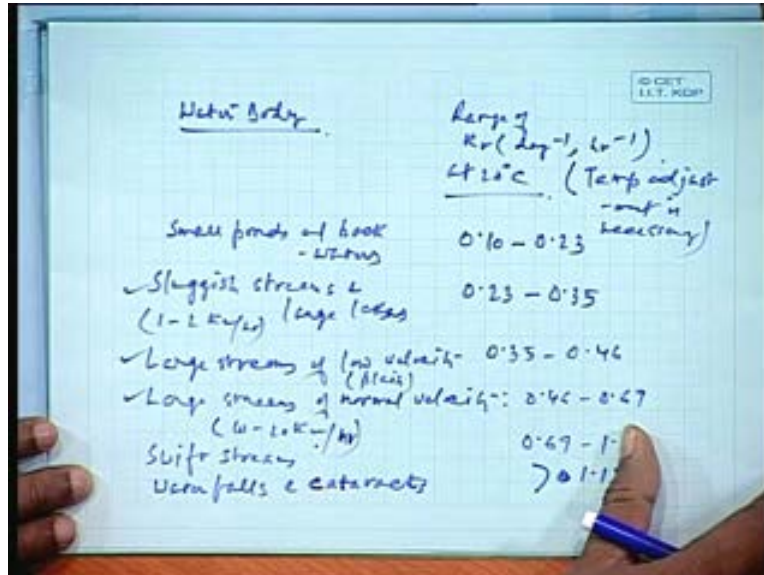 © CET
I.I.T. KGP
Water Body
Range of
Kr (day⁻¹, hr⁻¹)
at 20°C (Temp adjust
-ment is
necessary)
Small ponds and back
- waters
0.10 - 0.23
Sluggish streams &
0.23 - 0.35
(1-2 Km/hr) large lakes
Large streams of low velocity
0.35 - 0.46
Large streams of normal velocity: 0.46 - 0.67
Km/hr)
Swift streams
0.69 - 1.
Waterfalls & cataracts
> 1.1